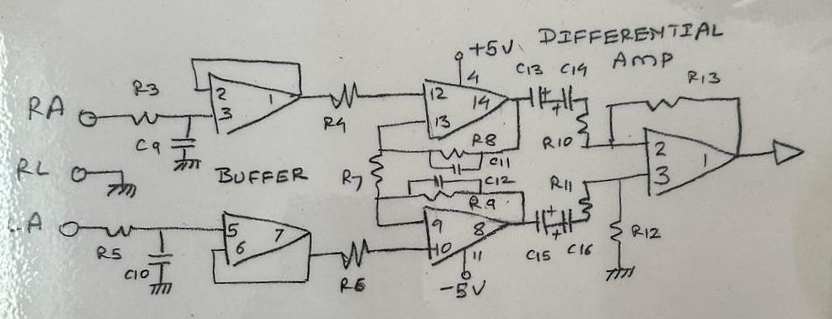 DIFFERENTIAL
AMP
+5V
RA
R3
C9
2
3
1
R4
12
13
4
14
C13
C14
R13
R8
C11
R10
2
3
1
RL
BUFFER
R7
C12
R9
R11
R12
A
R5
C10
5
6
7
R6
9
10
8
11
-5V
C15
C16